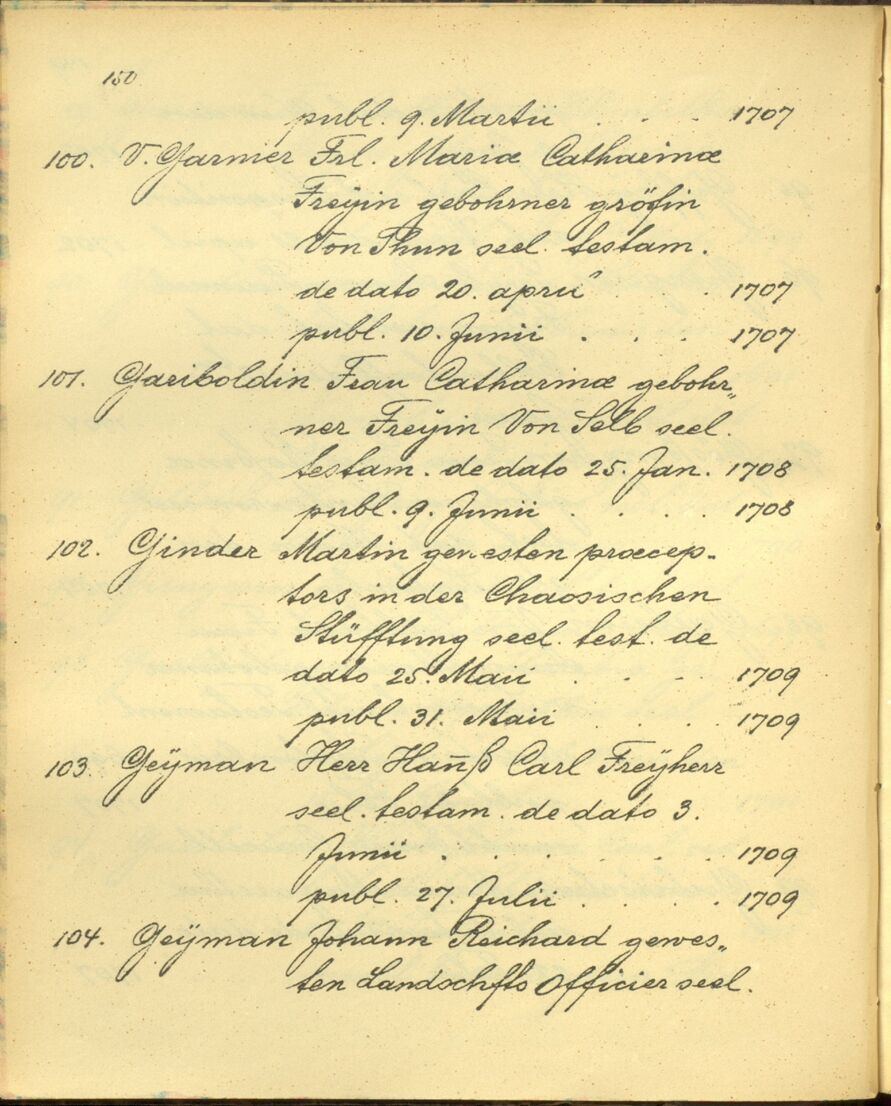 150
publ. 9. Martii . . . 1707
100. V. Garnier Frl. Mariæ Catharinæ
Freÿin gebohrner gröfin
Von Thun seel. testam.
de dato 20. april . . 1707
publ. 10. Junii . . . 1707
101. Gariboldin Frau Catharinæ gebohr„
ner Freÿin Von Selb seel.
testam. de dato 25. Jan. 1708
publ. 9. Junii . . . . 1708
102. Ginder Martin gewesten præcep-
tors in der Chaosischen
Stüfftung seel. test. de
dato 25. Maii . . . 1709
publ. 31. Maii . . . 1709
103. Geÿman Herr Han̄ß Carl Freÿherr
seel. testam. de dato 3.
Junii . . . . . . 1709
publ. 27. Julii . . . . 1709
104. Geÿman Johann Reichard gewes„
ten Landschffts Officier seel.